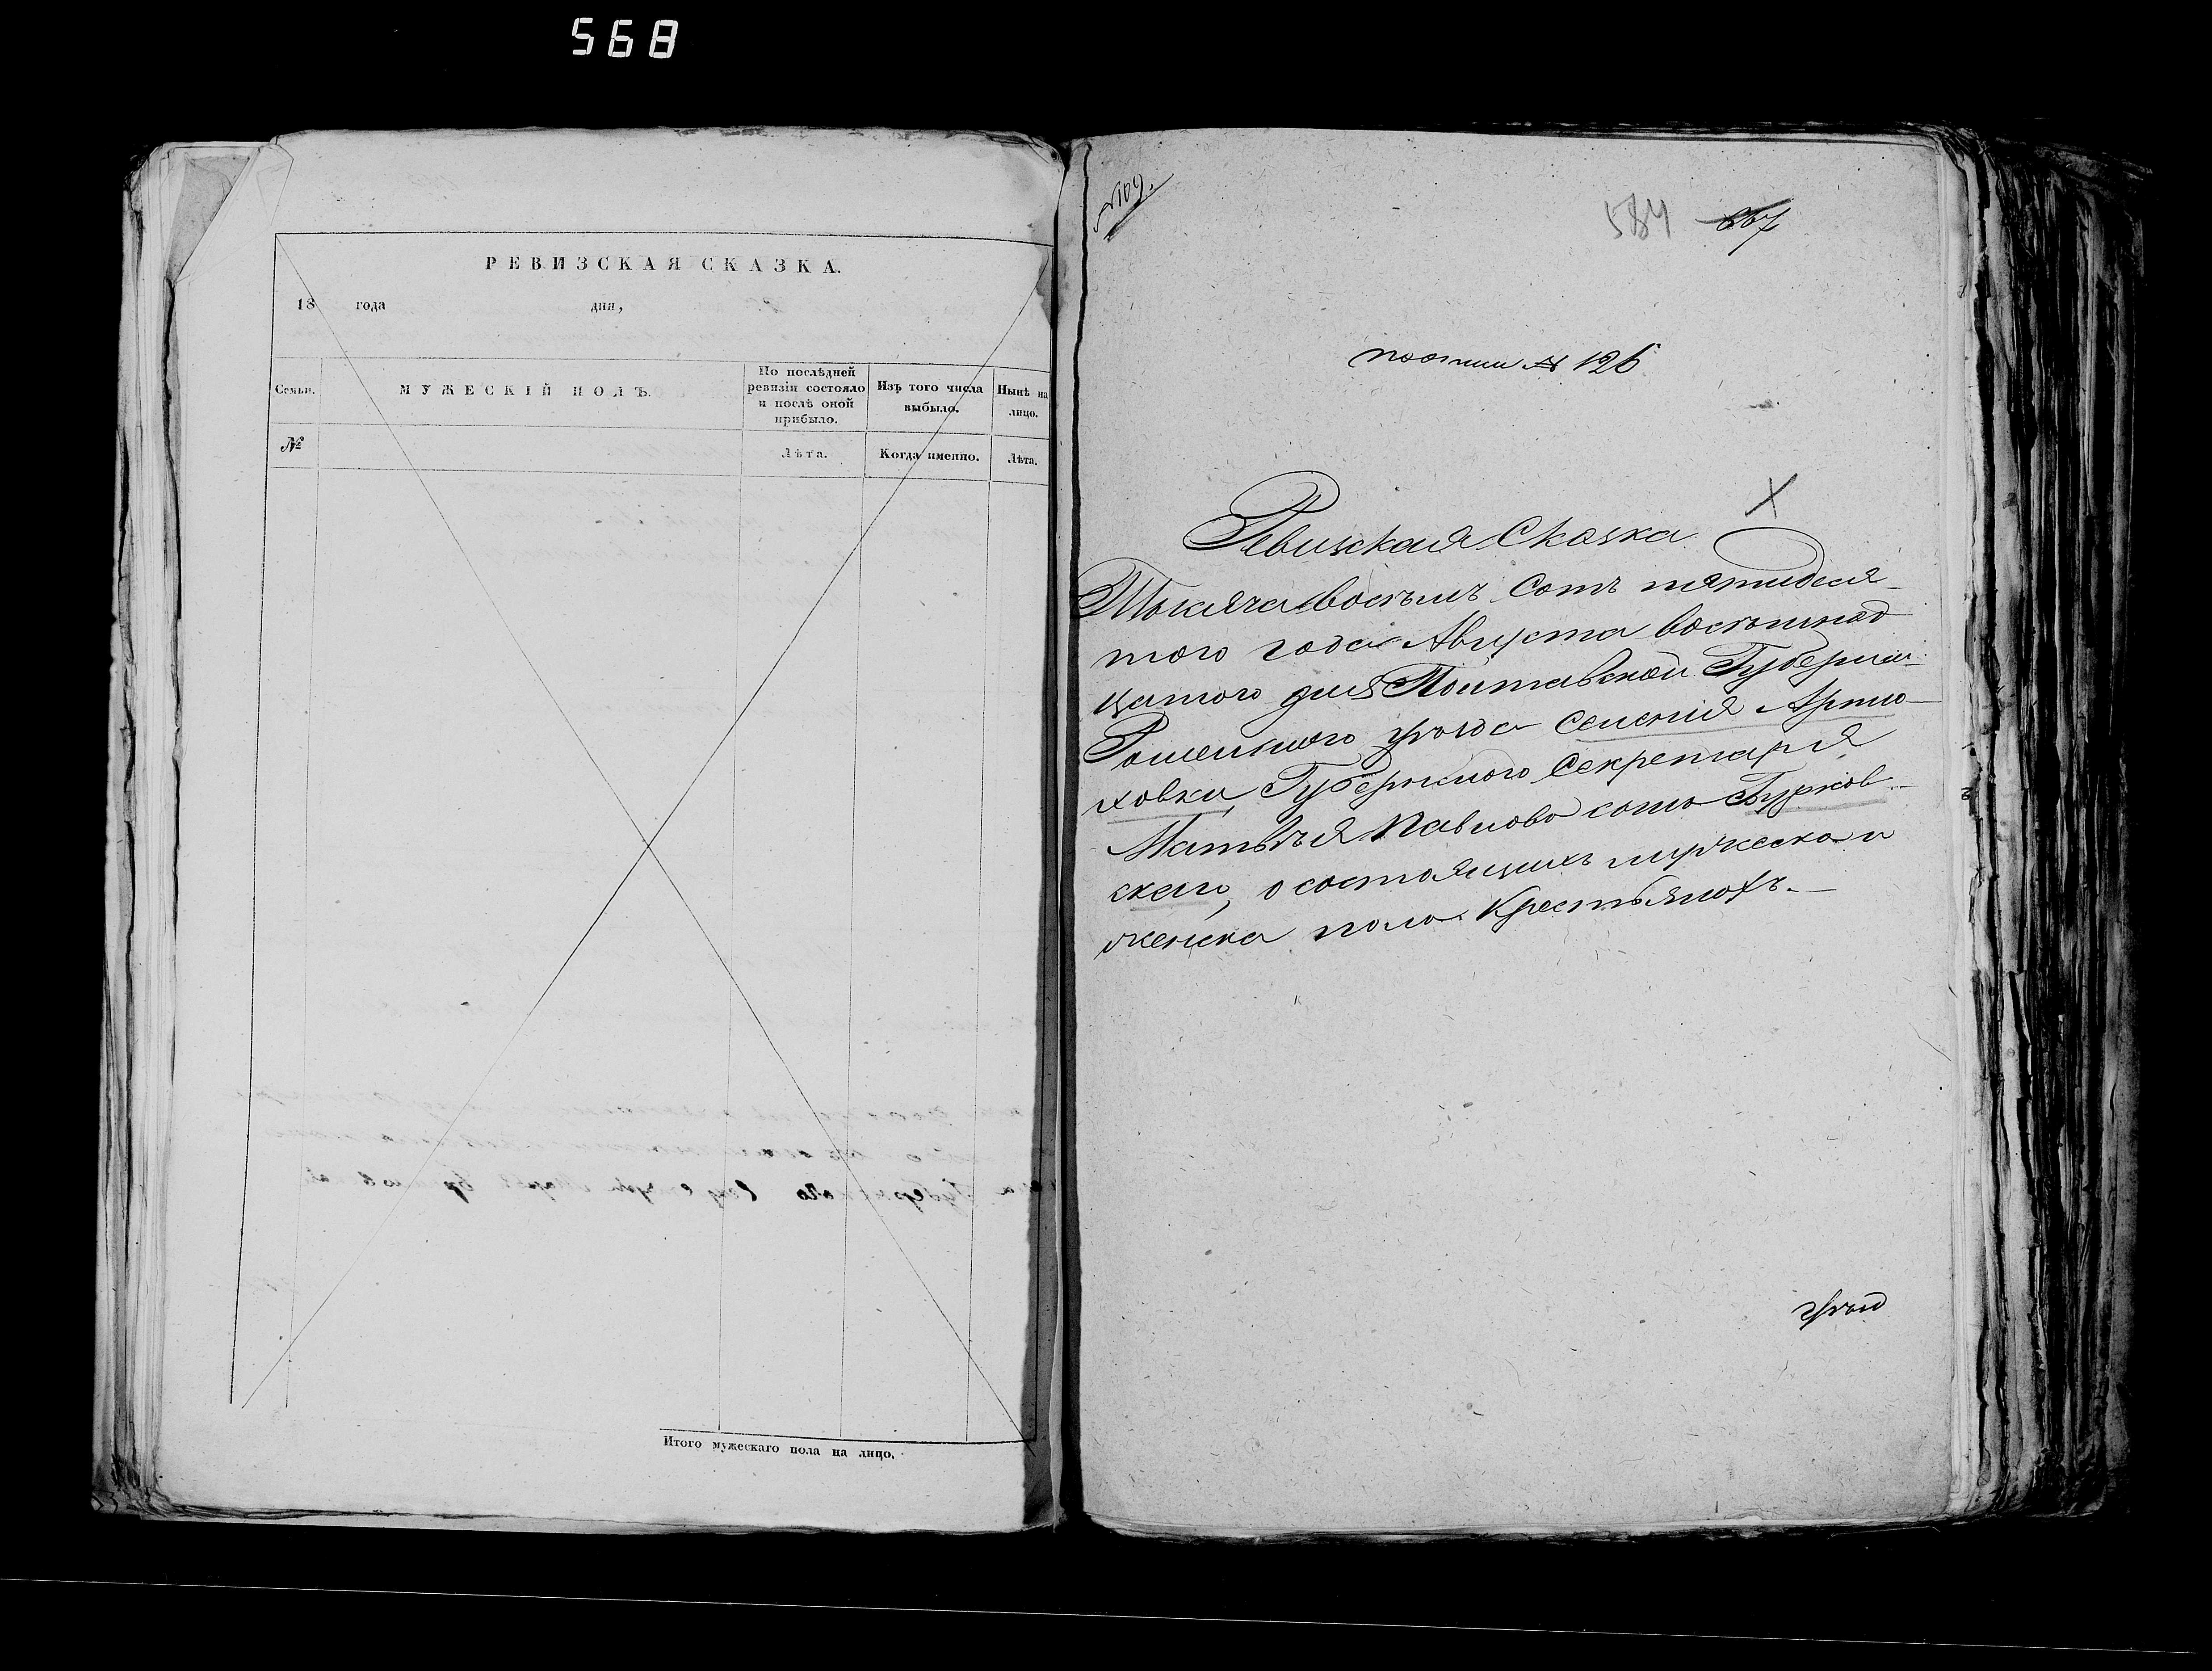 568
РЕВИЗСКАЯ СКАЗКА.
18 года дня,
Семьи.
МУЖЕСКІЙ ПОЛЪ.
По послѣдней
ревизіи состояло
и послѣ оной
прибыло.
Изъ того числа
выбыло.
Нынѣ на
лицо.
№
Лѣта.
Когда именно.
Лѣта.
Итого мужескаго пола на лицо.
№109.
584 567
по описи № 126
X
Ревизская Сказка
Тысяча восѣмъ сотъ пятидеся-
того года Августа восѣмнад
цатого дня Полтавской Губерніи
Роменского уѣзда Селенія Артю-
ховки, Губернского Секретаря
Матвѣя Павлова сына Бурков-
скаго, о состоящихъ мужеска и
женска пола Крестьянахъ.—